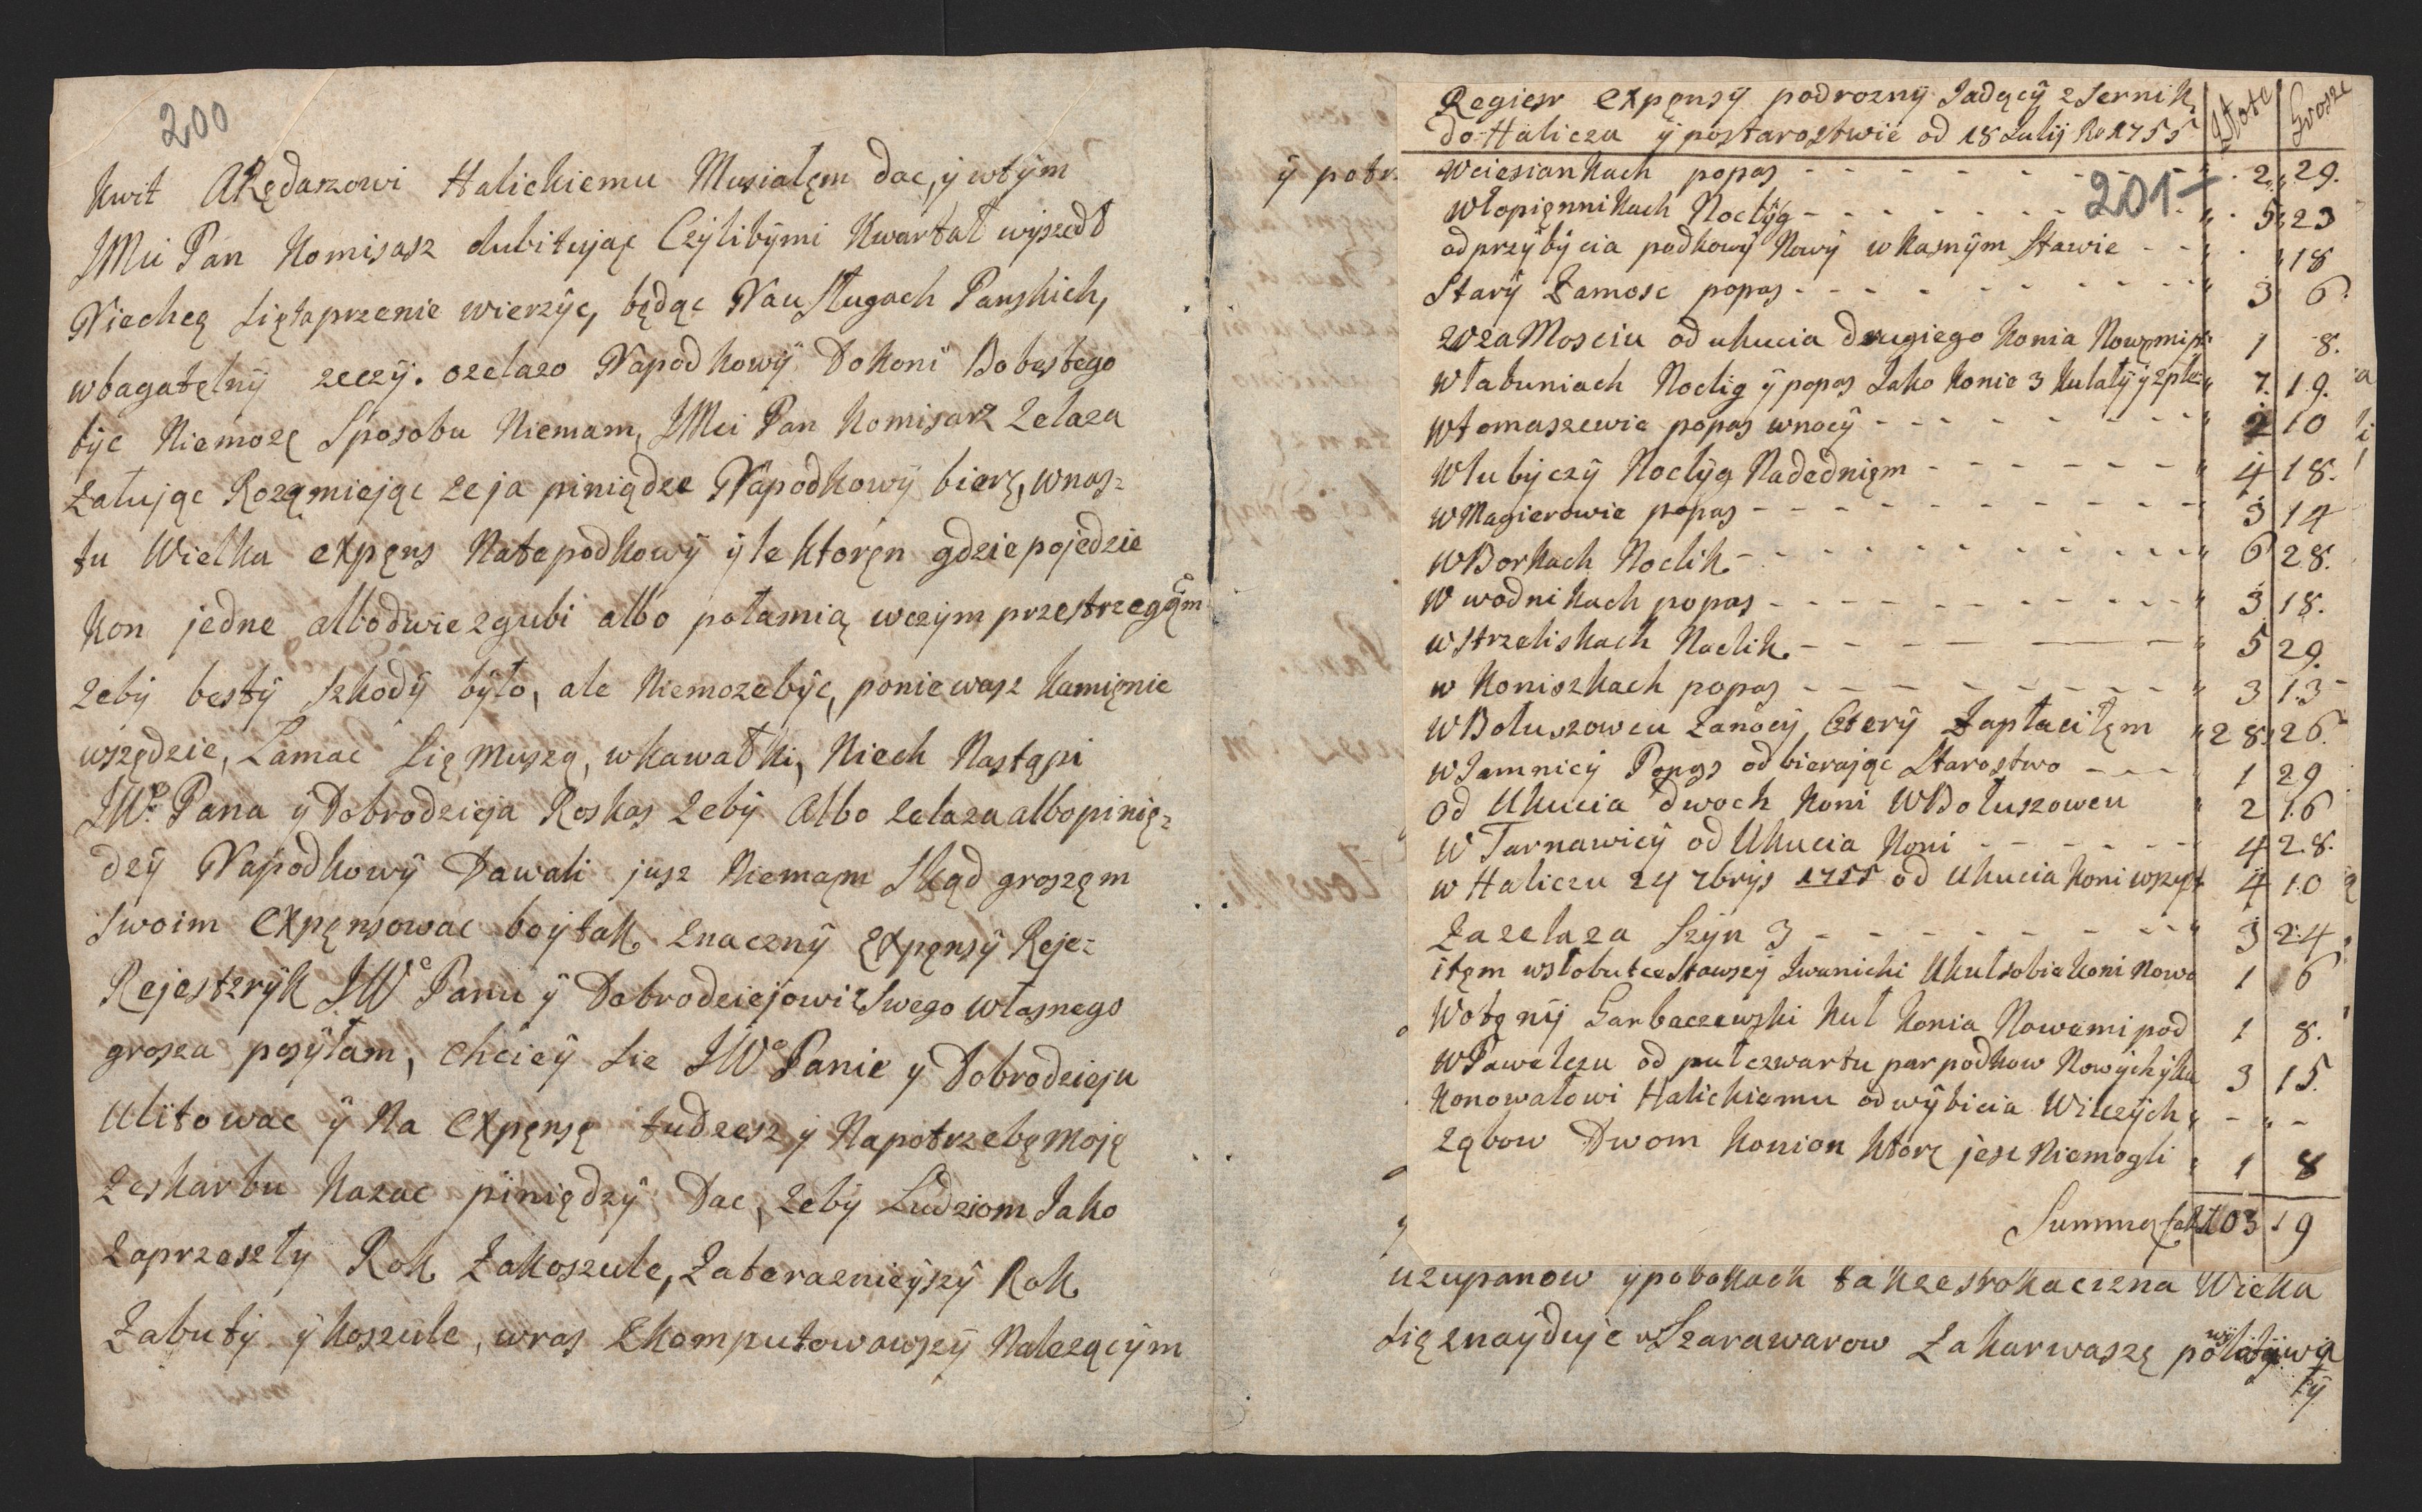 200
Kwit ARędarzowi Halickiemu Musialęm dac, ÿ wtÿm
JMci Pan Komisasz dubitując Czÿlibÿmi Kwartał wyszedł
Niechcą siętaprzenie wierzÿc, będąc Nau Sługach Panskich,
wbagatelnÿ zeczÿ. ozelazo Napodkowÿ Dokoni Bobęstego
bÿc Niemozę Sposobu Niemam, JMci Pan Komisarz Zelaza
Załując Roząmiejąc ze ja piniądze Napodkowÿ bierę, wnas-
tu Wielka expęns Natepodkowÿ ÿle ktoręn gdzie pojedzie
Kon jedne albodwie zgubi albo połamią wczÿm przestrzegąm
Zebÿ bestÿ Szkodÿ bÿło, ale Niemozebÿc, poniewasz kamięnie
wszędzie, Łamac się muszą, wkawałki, Niech Nastąpi
JWo Pana ÿ Dobrodzieja Roskas Zebÿ Albo zelaza albopinię-
dzÿ Napodkowÿ Dawali jusz Niemąm Skąd groszęm
swoim Expęnsowac boÿtak znacznÿ Expęnsÿ Reje-
Rejestrzÿk JWo Panu ÿ Dobrodziejowi zSwego własnego
grosza posÿłam, chcieÿ sie JWo Panie y Dobrodzieju
Ulitowac ÿ Na Expęnsę tudzesz ÿ Napotrzebę moję
Zeskarbu kazac piniędzÿ Dac, Zebÿ Ludziom Jako
Zaprzeszłÿ Rok Zakoszule, Zateraznieÿszÿ Rok
Zabutÿ ÿ koszule, wras Skomputowawszÿ Nalezącÿm
ÿ potr
201
Regiesr Expęnsÿ podroznÿ Jadącÿ z Sernik
do Halicza ÿ postarostwie od 18 Julij Ro 1755 Złote Grosze
Wciesiankach popas 2 29.
Włopiennikach Noclÿg 5 23
od przÿbÿcia podkowÿ Nowÿ w kasnÿm Stawie 18
Starÿ Zamosc popas 3 6.
WzaMosciu od ukucia drugiego konia Nowęmi 1 8.
Włabuniach Noclig ÿ popas Jako konie 3 kulałÿ 7. 19.
Wtomaszewie popas wnocÿ 2 10
Wlubÿczÿ Noclÿg Nadednięm 4 18.
WMagierowie popas 3 14
WBorkach Noclik 6 28.
W wodnikach popas 3 18.
w Strzeliskach Noclik 5 29.
w Koniszkach popas 3 13
WBołuszowcu Zanocÿ Cterÿ Zapłaciłęm 28 26.
w Jamnicÿ Popas odbierając Starostwo 1 29
od Ukucia dwoch koni WBołuszowcu 2 16
w Tarnawicÿ od Ukucia koni 4 28.
w Haliczu 24 7brÿs 1755 od Ukucia koni wszyst 4 10
Zazelaza Szÿn 3 3 24
itęm Iwanicki Ukulsobie koni nowo 1 6
Garbaczewski kul konia Nowemi pod 1 8.
WPawelczu od pułczwartu par podkow Nowÿch 3 15.
Konowałowi Halickiemu od wÿbicia Wilczÿch - -
Ząbow Dwom konion Ktorę jesc Niemogli 1 8
Summa 103 19
uzupanow ÿpobokach takzestrokacizna Wielka
Się znaÿduje uSzarawarow Zakarwaszę
tÿ